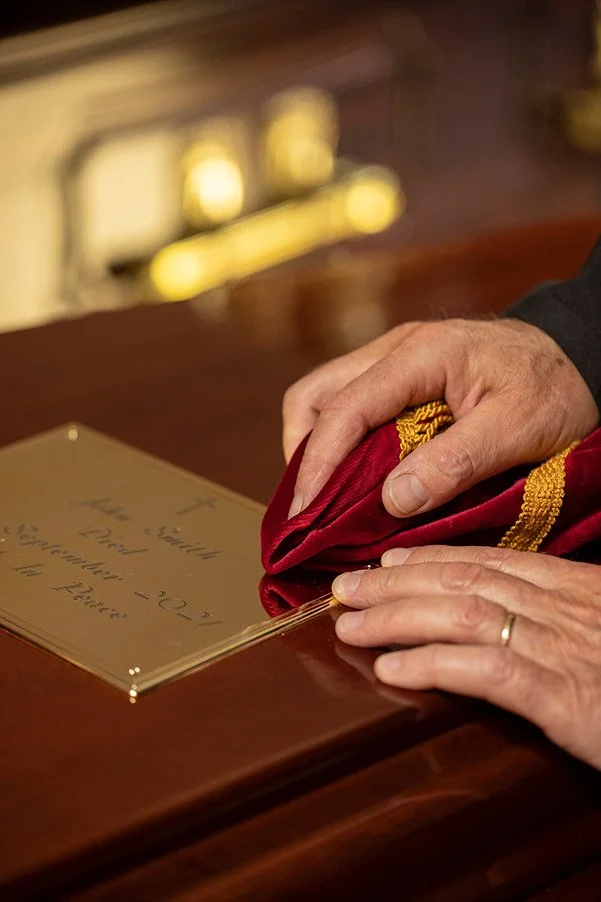 John Smith
Died
September 2021
In Peace